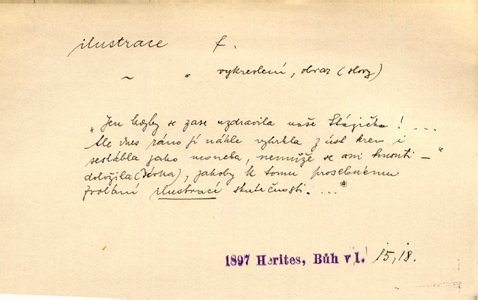 ilustrace f.
~ " vykreslení, obraz (slovy)
„Jen kdyby se zase uzdravila naše Stázička! ...
Ale dnes ráno jí náhle vyhrkla z úst krev i
seslábla jako moucha, nemůže se ani hnouti –"
doložila (Verka), jakoby k tomu prosebnému
volání ilustraci skutečnosti. ..."
1897 Herites, Bůh v l. 15, 18.